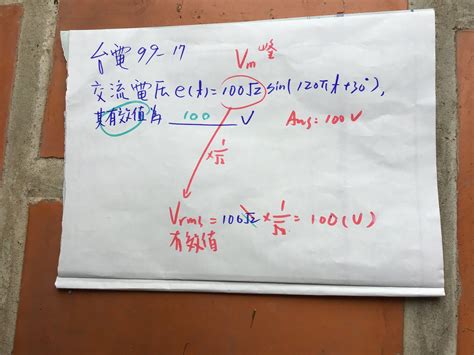 台電99-17
Vm峰
交流電压e(t)=100√2 sin(120πt+30°),
其有效值為 100 V Ans: 100V
×1/√2
Vrms = 100√2 × 1/√2 = 100(V)
有效值